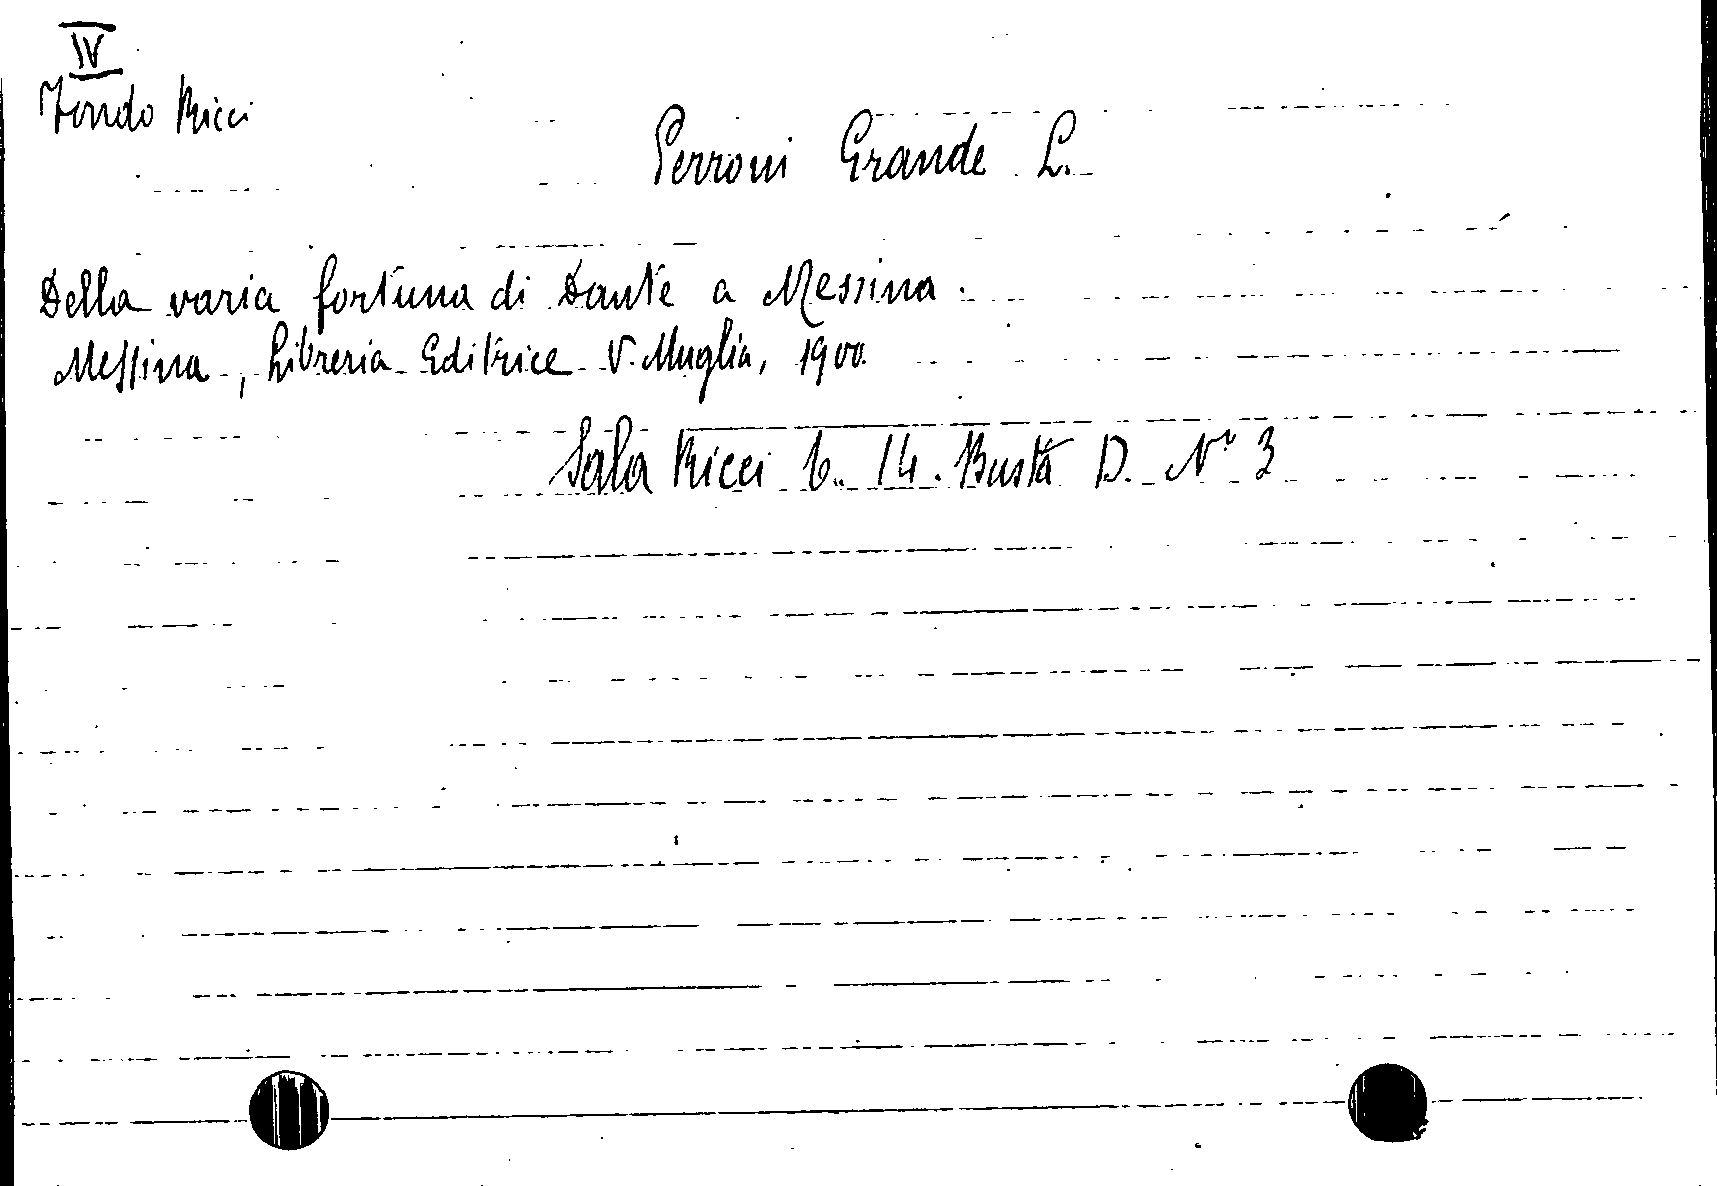 IV
Fondo Ricci
Perroni Grande L.
Della varia fortuna di Dante a Messina.
Messina, Libreria Editrice V. Muglia, 1900.
Sala Ricci 6. 14. Busta D. Nº 3